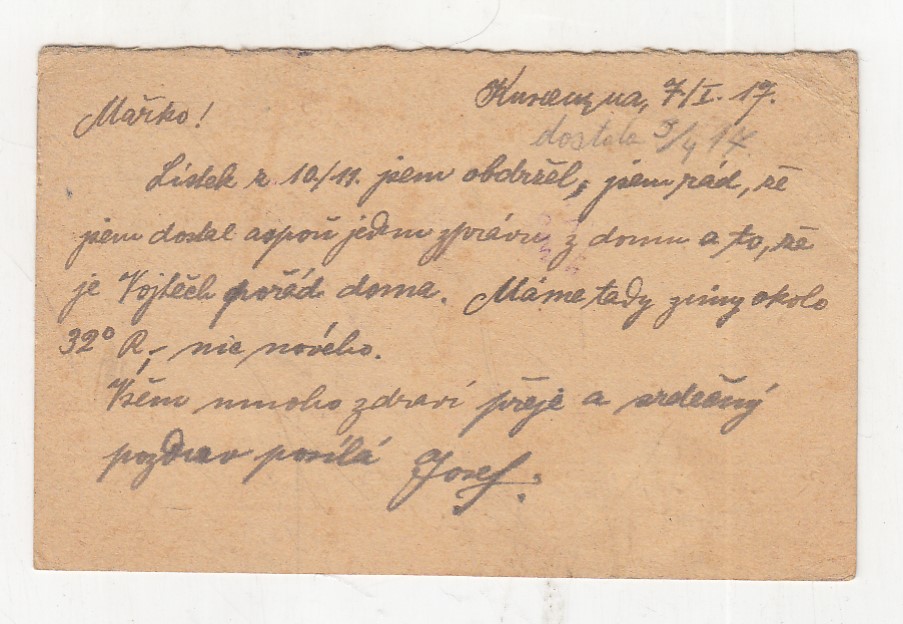 7/I. 17.
Mařko!
dostala 3/4 17.
Lístek z 10/11. jsem obdržel, jsem rád, že
jsem dostal aspoň jednu zprávu z domu a to, že
je Vojtěch pořád doma. Máme tady zimy okolo
32° R, – nic nového.
Všem mnoho zdraví přeje a srdečný
pozdrav posílá Josef.